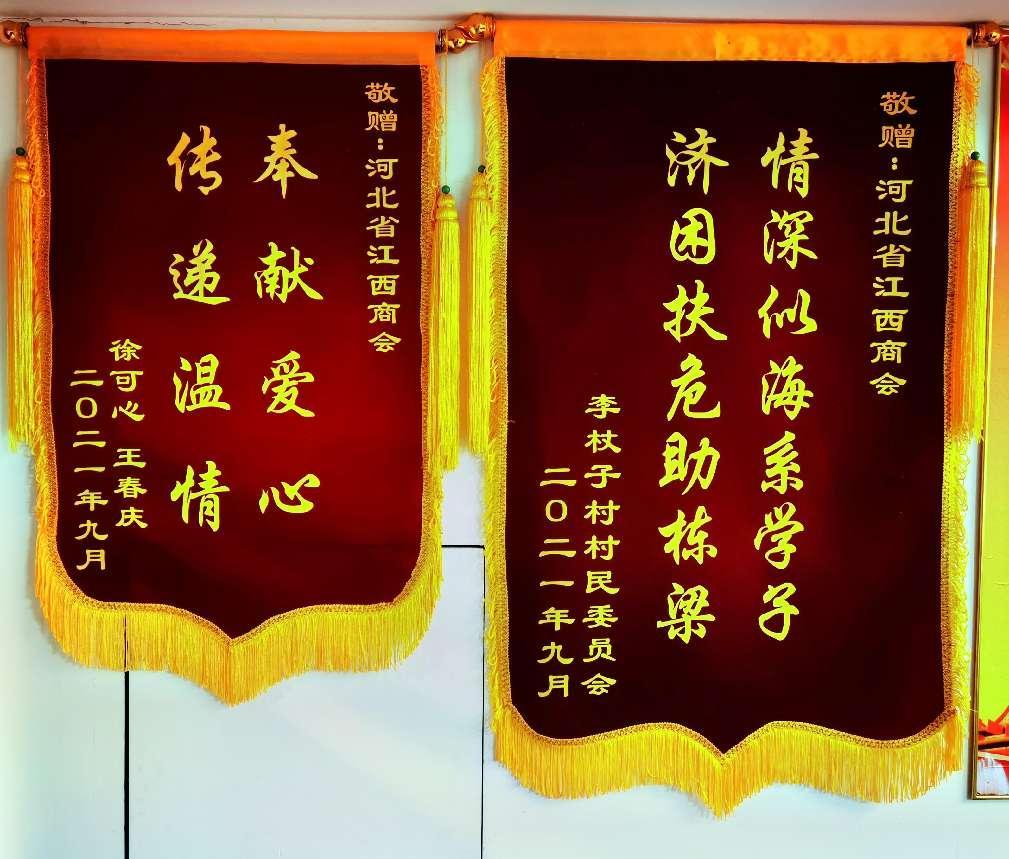 敬赠：河北省江西商会
奉献爱心
传递温情
徐可心 王春庆
二〇二一年九月
敬赠：河北省江西商会
情深似海系学子
济困扶危助栋梁
李杖子村村民委员会
二〇二一年九月